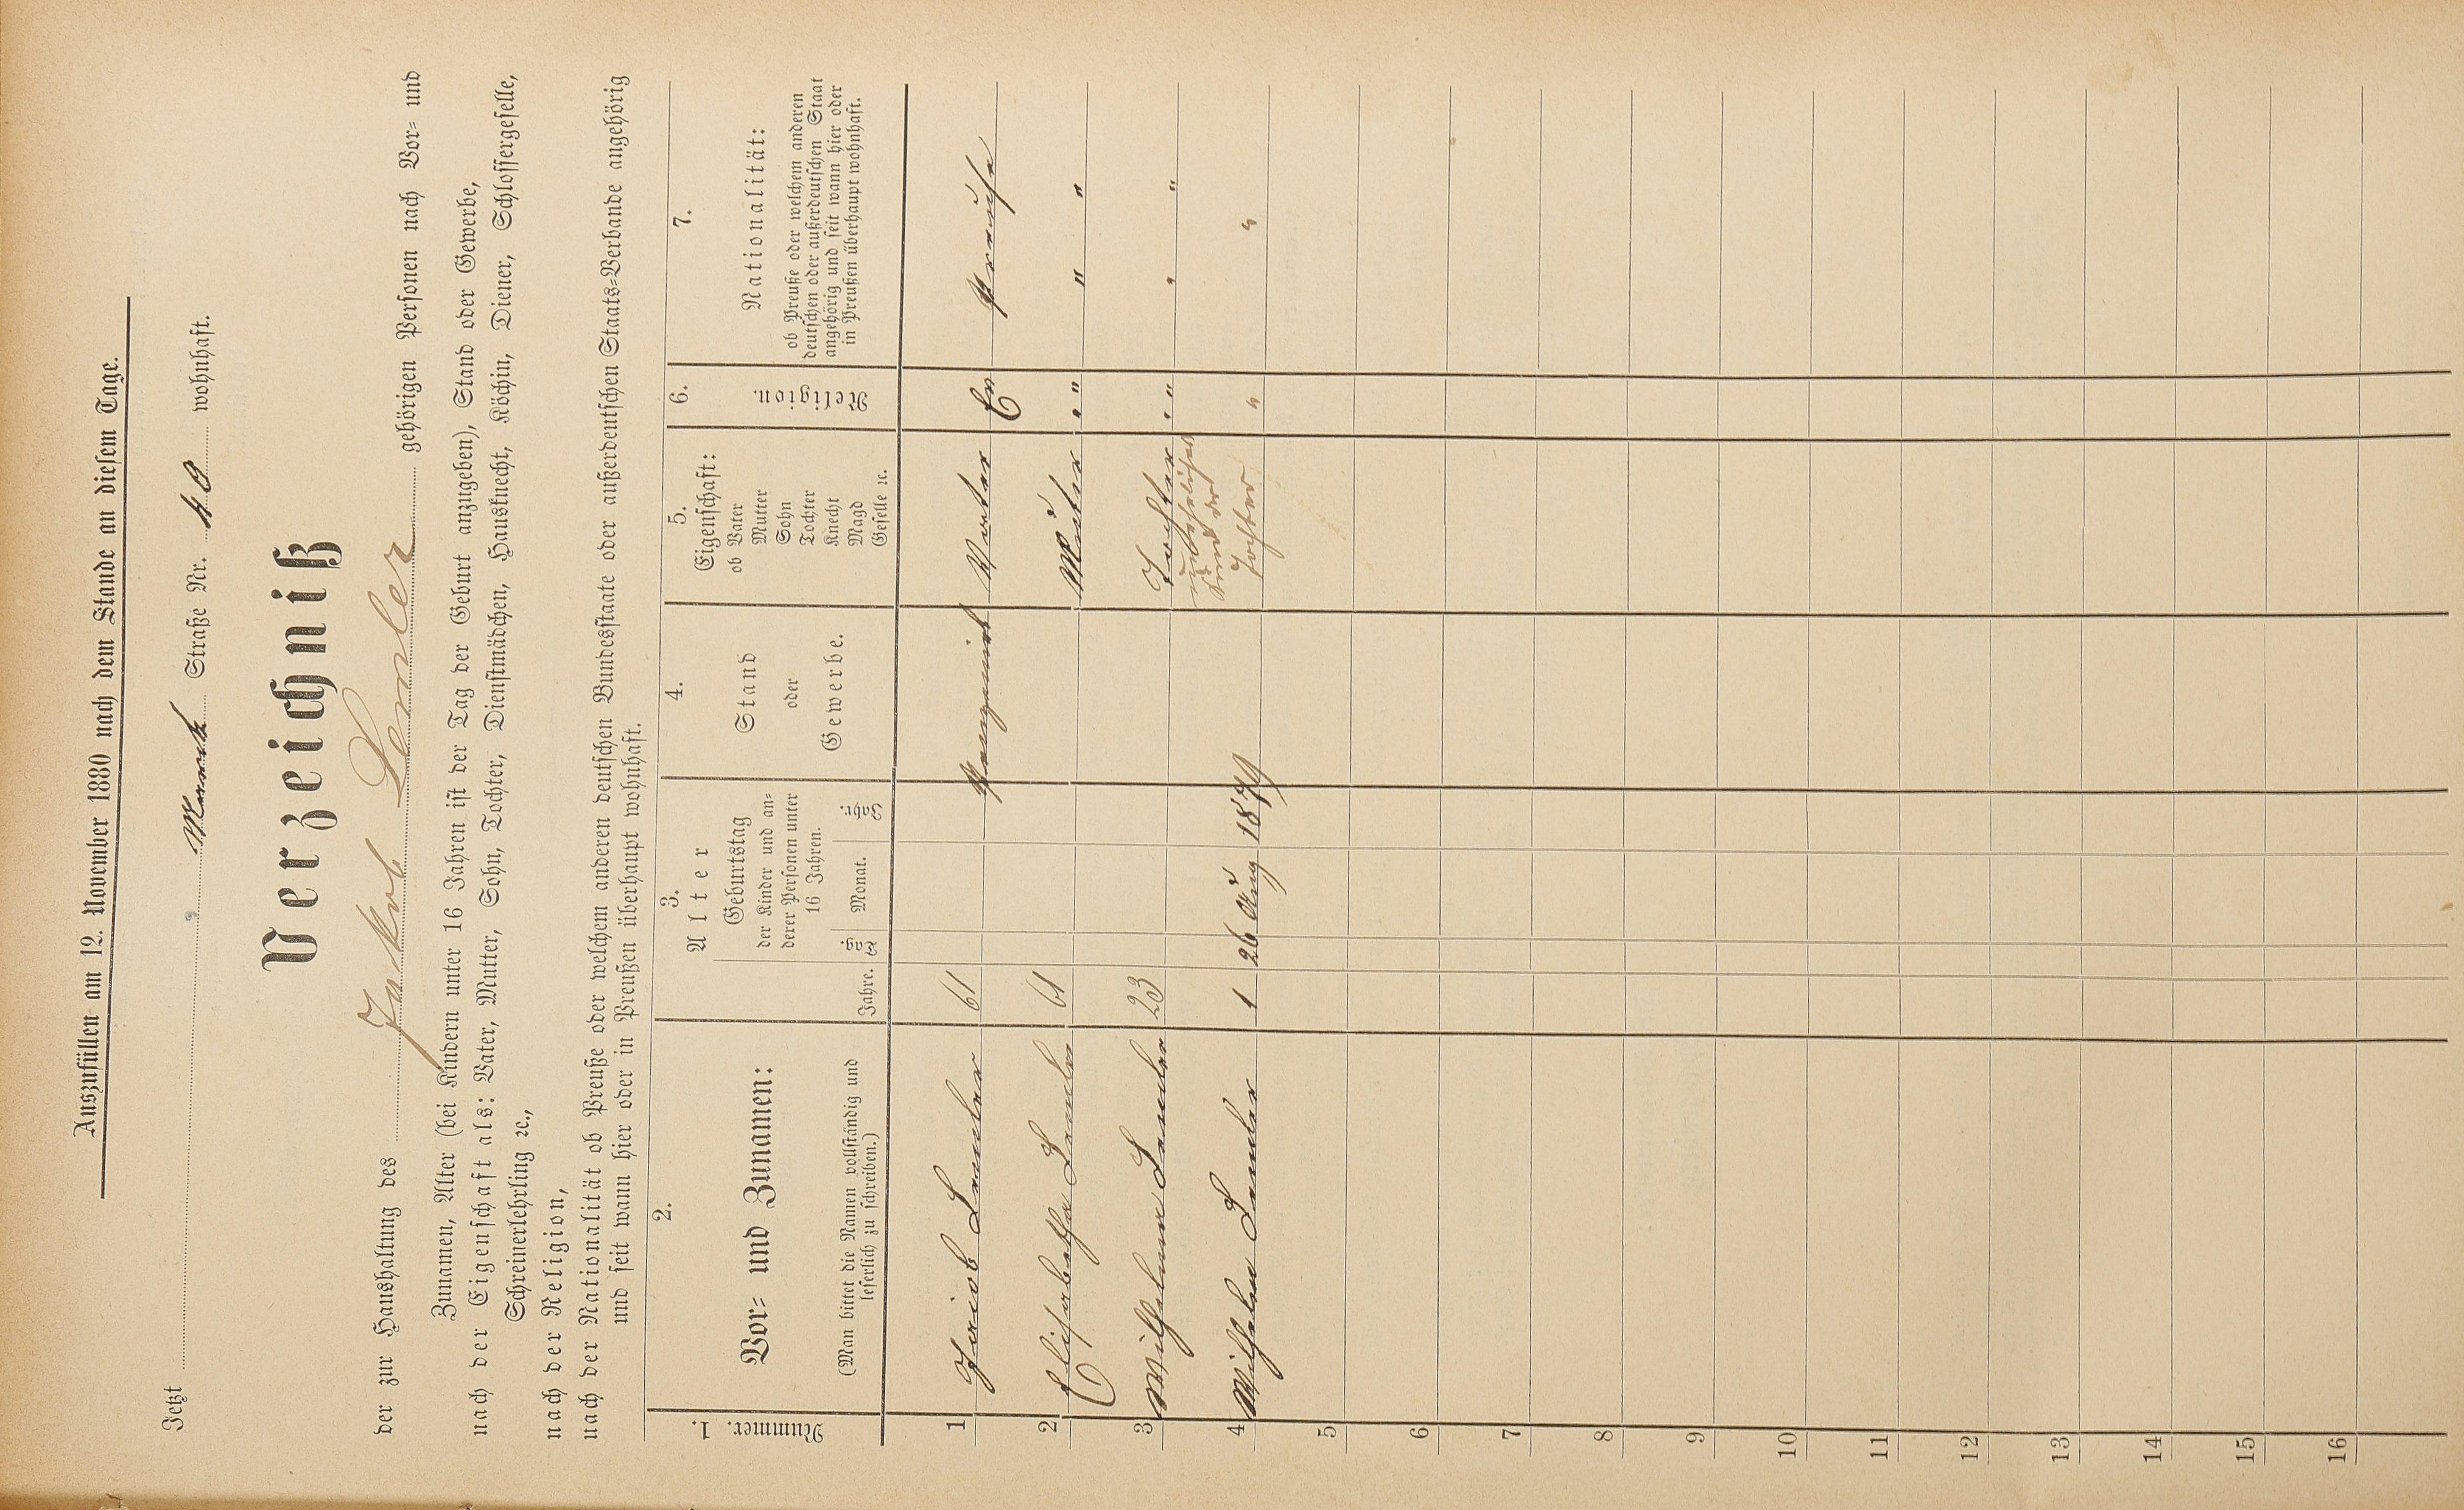 Auszufüllen am 12. November 1880 nach dem Stande an diesem Tage.
Jetzt Straße Nr. 40 wohnhaft.
Verzeichniß
der zur Haushaltung des Jakob Lemler gehörigen Personen nach Vor- und
Zunamen, Alter (bei Kindern unter 16 Jahren ist der Tag der Geburt anzugeben), Stand oder Gewerbe,
nach der Eigenschaft als: Vater, Mutter, Sohn, Tochter, Dienstmädchen, Hausknecht, Köchin, Diener, Schlossergeselle,
Schreinerlehrling ꝛc.,
nach der Religion,
nach der Nationalität ob Preuße oder welchem anderen deutschen Bundesstaate oder außerdeutschen Staats-Verbande angehörig
und seit wann hier oder in Preußen überhaupt wohnhaft.
1.
Nummer.
2.
Vor- und Zunamen:
(Man bittet die Namen vollständig und
leserlich zu schreiben.)
3.
Alter
Jahre.
Geburtstag
der Kinder und an-
derer Personen unter
16 Jahren.
Tag. Monat. Jahr.
4.
Stand
oder
Gewerbe.
5.
Eigenschaft:
ob Vater
Mutter
Sohn
Tochter
Knecht
Magd
Geselle ꝛc.
6.
Religion.
7.
Nationalität:
ob Preuße oder welchem anderen
deutschen oder außerdeutschen Staat
angehörig und seit wann hier oder
in Preußen überhaupt wohnhaft.
1 Jacob Lemler 61 Vater Ev Preuße
2 Elisabetha Lemler 61 Mutter " " " "
3 Lemler 23 Tochter " " " "
4 Wilhelm Lemler 1 26 Aug 1879 uneheliches Kind der Tochter " "
5
6
7
8
9
10
11
12
13
14
15
16